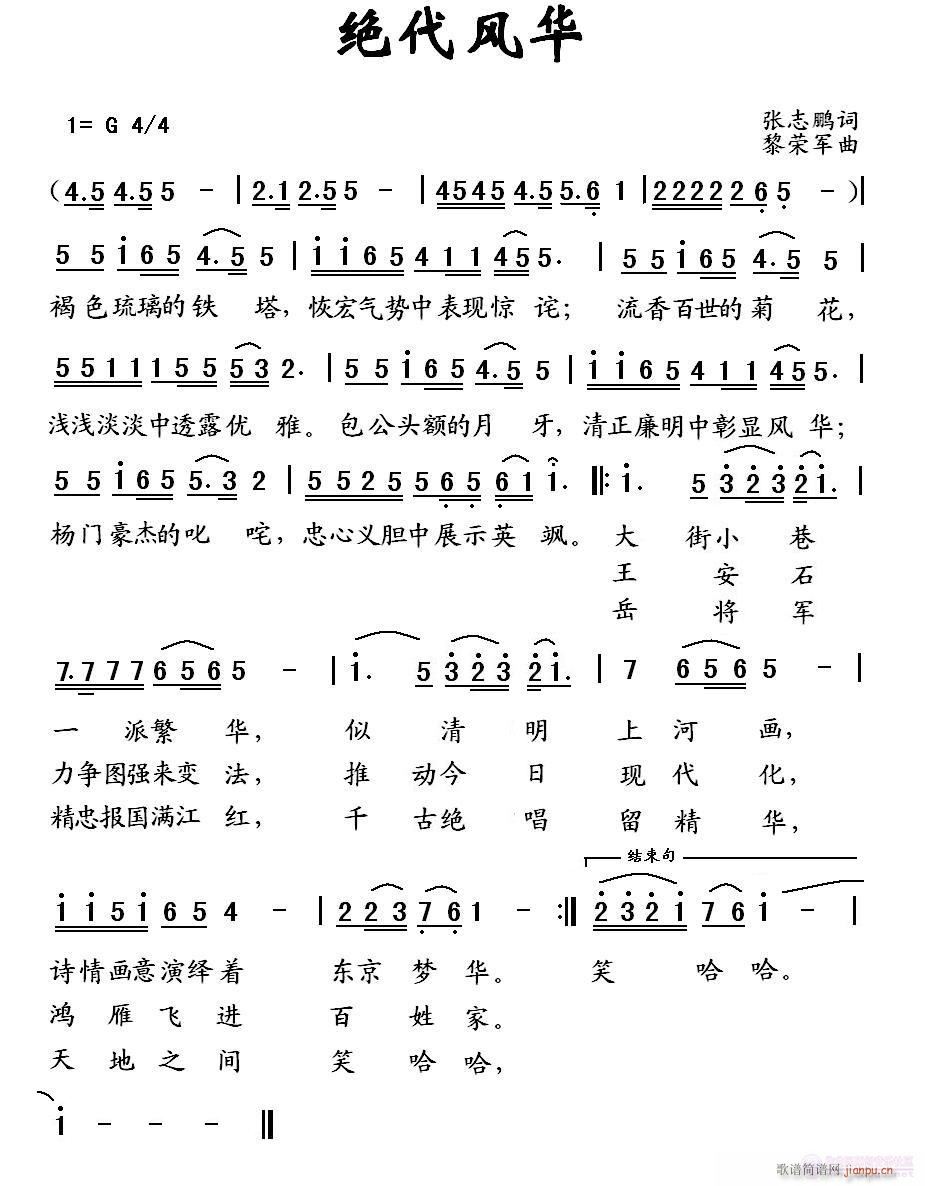 绝代风华
1= G 4/4
张志鹏词
黎荣军曲
( 4.5 4.5 5 - | 2.1 2.5 5 - | 4545 4.5 5.6 1 | 2222 226 5 - )|
5 5 i65 4.5 5 | i i65 411 455. | 55 i65 4.5 5 |
褐色琉璃的铁 塔，恢宏气势中表现惊 诧； 流香百世的菊 花，
5511 155 553 2. | 55 i65 4.5 5 | i i65 411 455. |
浅浅淡淡中透露优 雅。包公头额的月 牙，清正廉明中彰显风 华；
55 i65 5.3 2 | 5525 565 61 i. |: i. 5 323 2i. |
杨门豪杰的叱 咤，忠心义胆中展示英 飒。 大 街小 巷
王 安 石
岳 将 军
7.777 656 5 - | i. 5 323 2i. | 7 656 5 - |
一 派繁 华， 似 清 明 上 河 画，
力争图强来变 法， 推 动今 日 现 代 化，
精忠报国满江 红， 千 古绝 唱 留 精 华，
结束句
i i5i 65 4 - | 223 76 1 - :| 232i 76 i - |
诗情画意演绎着 东京 梦 华。 笑 哈 哈。
鸿 雁 飞 进 百 姓 家。
天 地 之 间 笑 哈 哈，
i - - - ||
歌谱简谱网 jianpu.cn